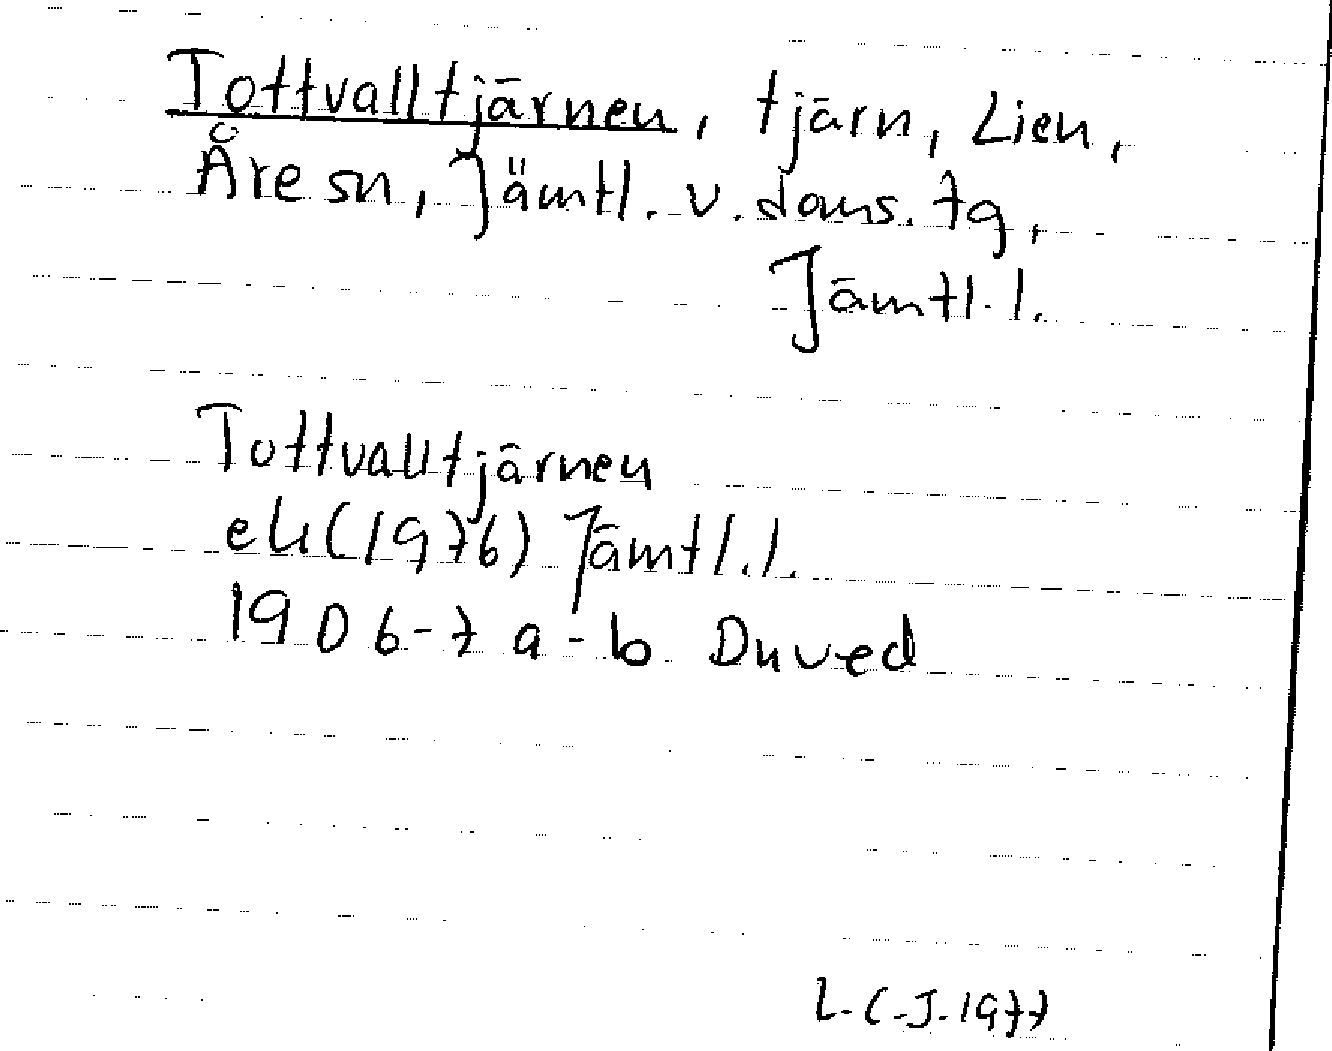 Tottvalltjärnen, tjärn, Lien,
Åre sn, Jämtl. v. doms. tg,
Jämtl. l.
Tottvalltjärnen
ek (1976) Jämtl. l.
19 D 6-7 a-b Duved
L-C-J-1977